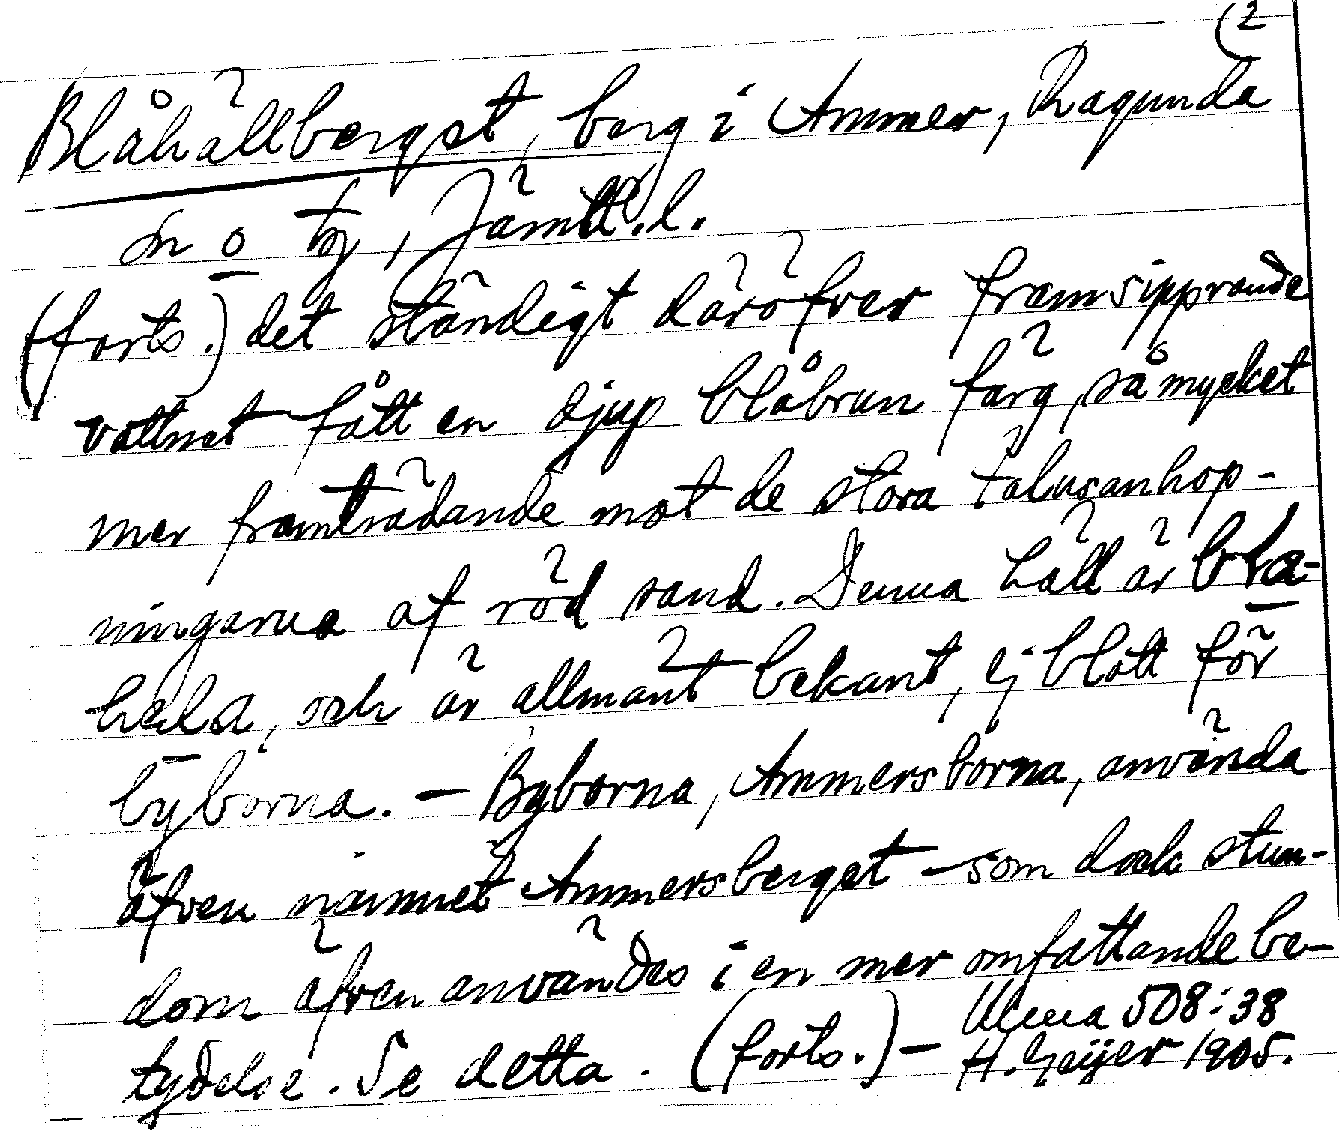 (2
Blåhällberget, berg i Ammer, Ragunda
sn o tg, Jämtl. l.
(forts.) det ständigt däröfver framsipprande
vattnet fått en djup blåbrun färg, så mycket
mer framträdande mot de stora talusanhop-
ningarna af röd sand. Denna häll är blå-
hela, och är allmänt bekant, ej blott för
byborna. — Byborna, Ammersborna, använda
äfven namnet Ammersberget – som dock stun-
dom äfven användes i en mer omfattande be-
tydelse. Se detta. (forts.) – Ulma 508:38
H. Geijer 1905.